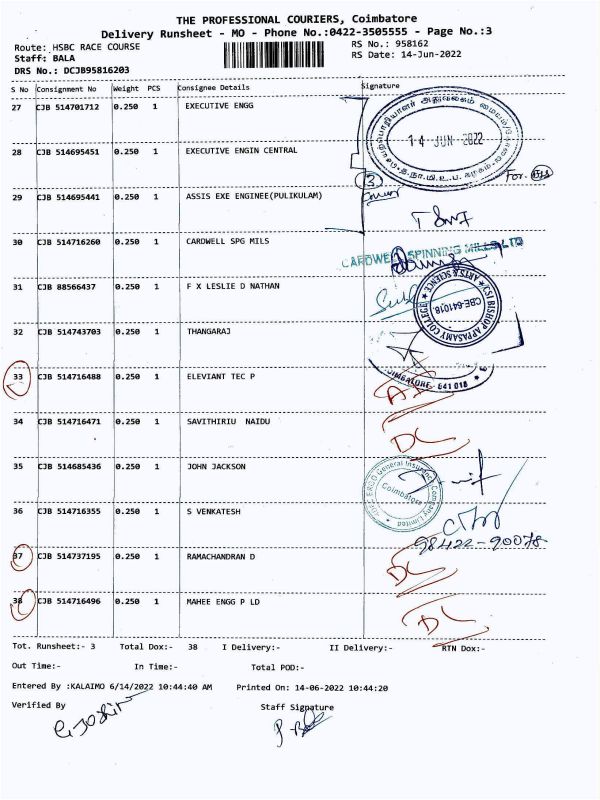 THE PROFESSIONAL COURIERS, Coimbatore
Delivery Runsheet - MO - Phone No.:0422-3505555 - Page No.:3
Route: HSBC RACE COURSE RS No.: 958162
Staff: BALA RS Date: 14-Jun-2022
DRS No.: DCJB95816203
S No Consignment No Weight PCS Consignee Details Signature
27 CJB 514701712 0.250 1 EXECUTIVE ENGG
14 JUN 2022
28 CJB 514695451 0.250 1 EXECUTIVE ENGIN CENTRAL
3 For.
29 CJB 514695441 0.250 1 ASSIS EXE ENGINEE(PULIKULAM)
30 CJB 514716260 0.250 1 CARDWELL SPG MILS
CARDWELL SPINNING MILLS LTD
31 CJB 88566437 0.250 1 F X LESLIE D NATHAN
CSI BISHOP APPASAMY COLLEGE ★ ARTS & SCIENCE ★
CBE-641018
32 CJB 514743703 0.250 1 THANGARAJ
COIMBATORE - 641 018
33 CJB 514716488 0.250 1 ELEVIANT TEC P
34 CJB 514716471 0.250 1 SAVITHIRIU NAIDU DL
35 CJB 514685436 0.250 1 JOHN JACKSON
HDFC ERGO General Insurance Company Limited
Coimbatore
36 CJB 514716355 0.250 1 S VENKATESH
98422-90078
37 CJB 514737195 0.250 1 RAMACHANDRAN D DL
38 CJB 514716496 0.250 1 MAHEE ENGG P LD DL
Tot. Runsheet:- 3 Total Dox:- 38 I Delivery:- II Delivery:- RTN Dox:-
Out Time:- In Time:- Total POD:-
Entered By :KALAIMO 6/14/2022 10:44:40 AM Printed On: 14-06-2022 10:44:20
Verified By Staff Signature